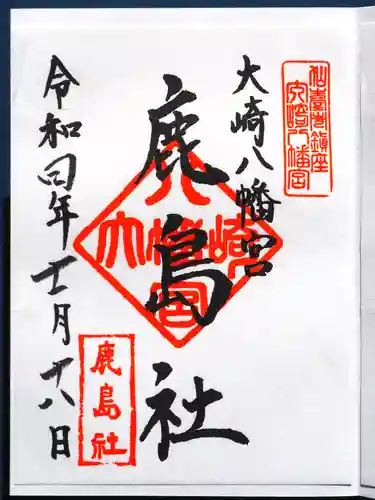 仙臺市鎮座
大崎八幡宮
大崎八幡宮
鹿島社
大崎八幡宮
鹿島社
令和四年十一月十八日